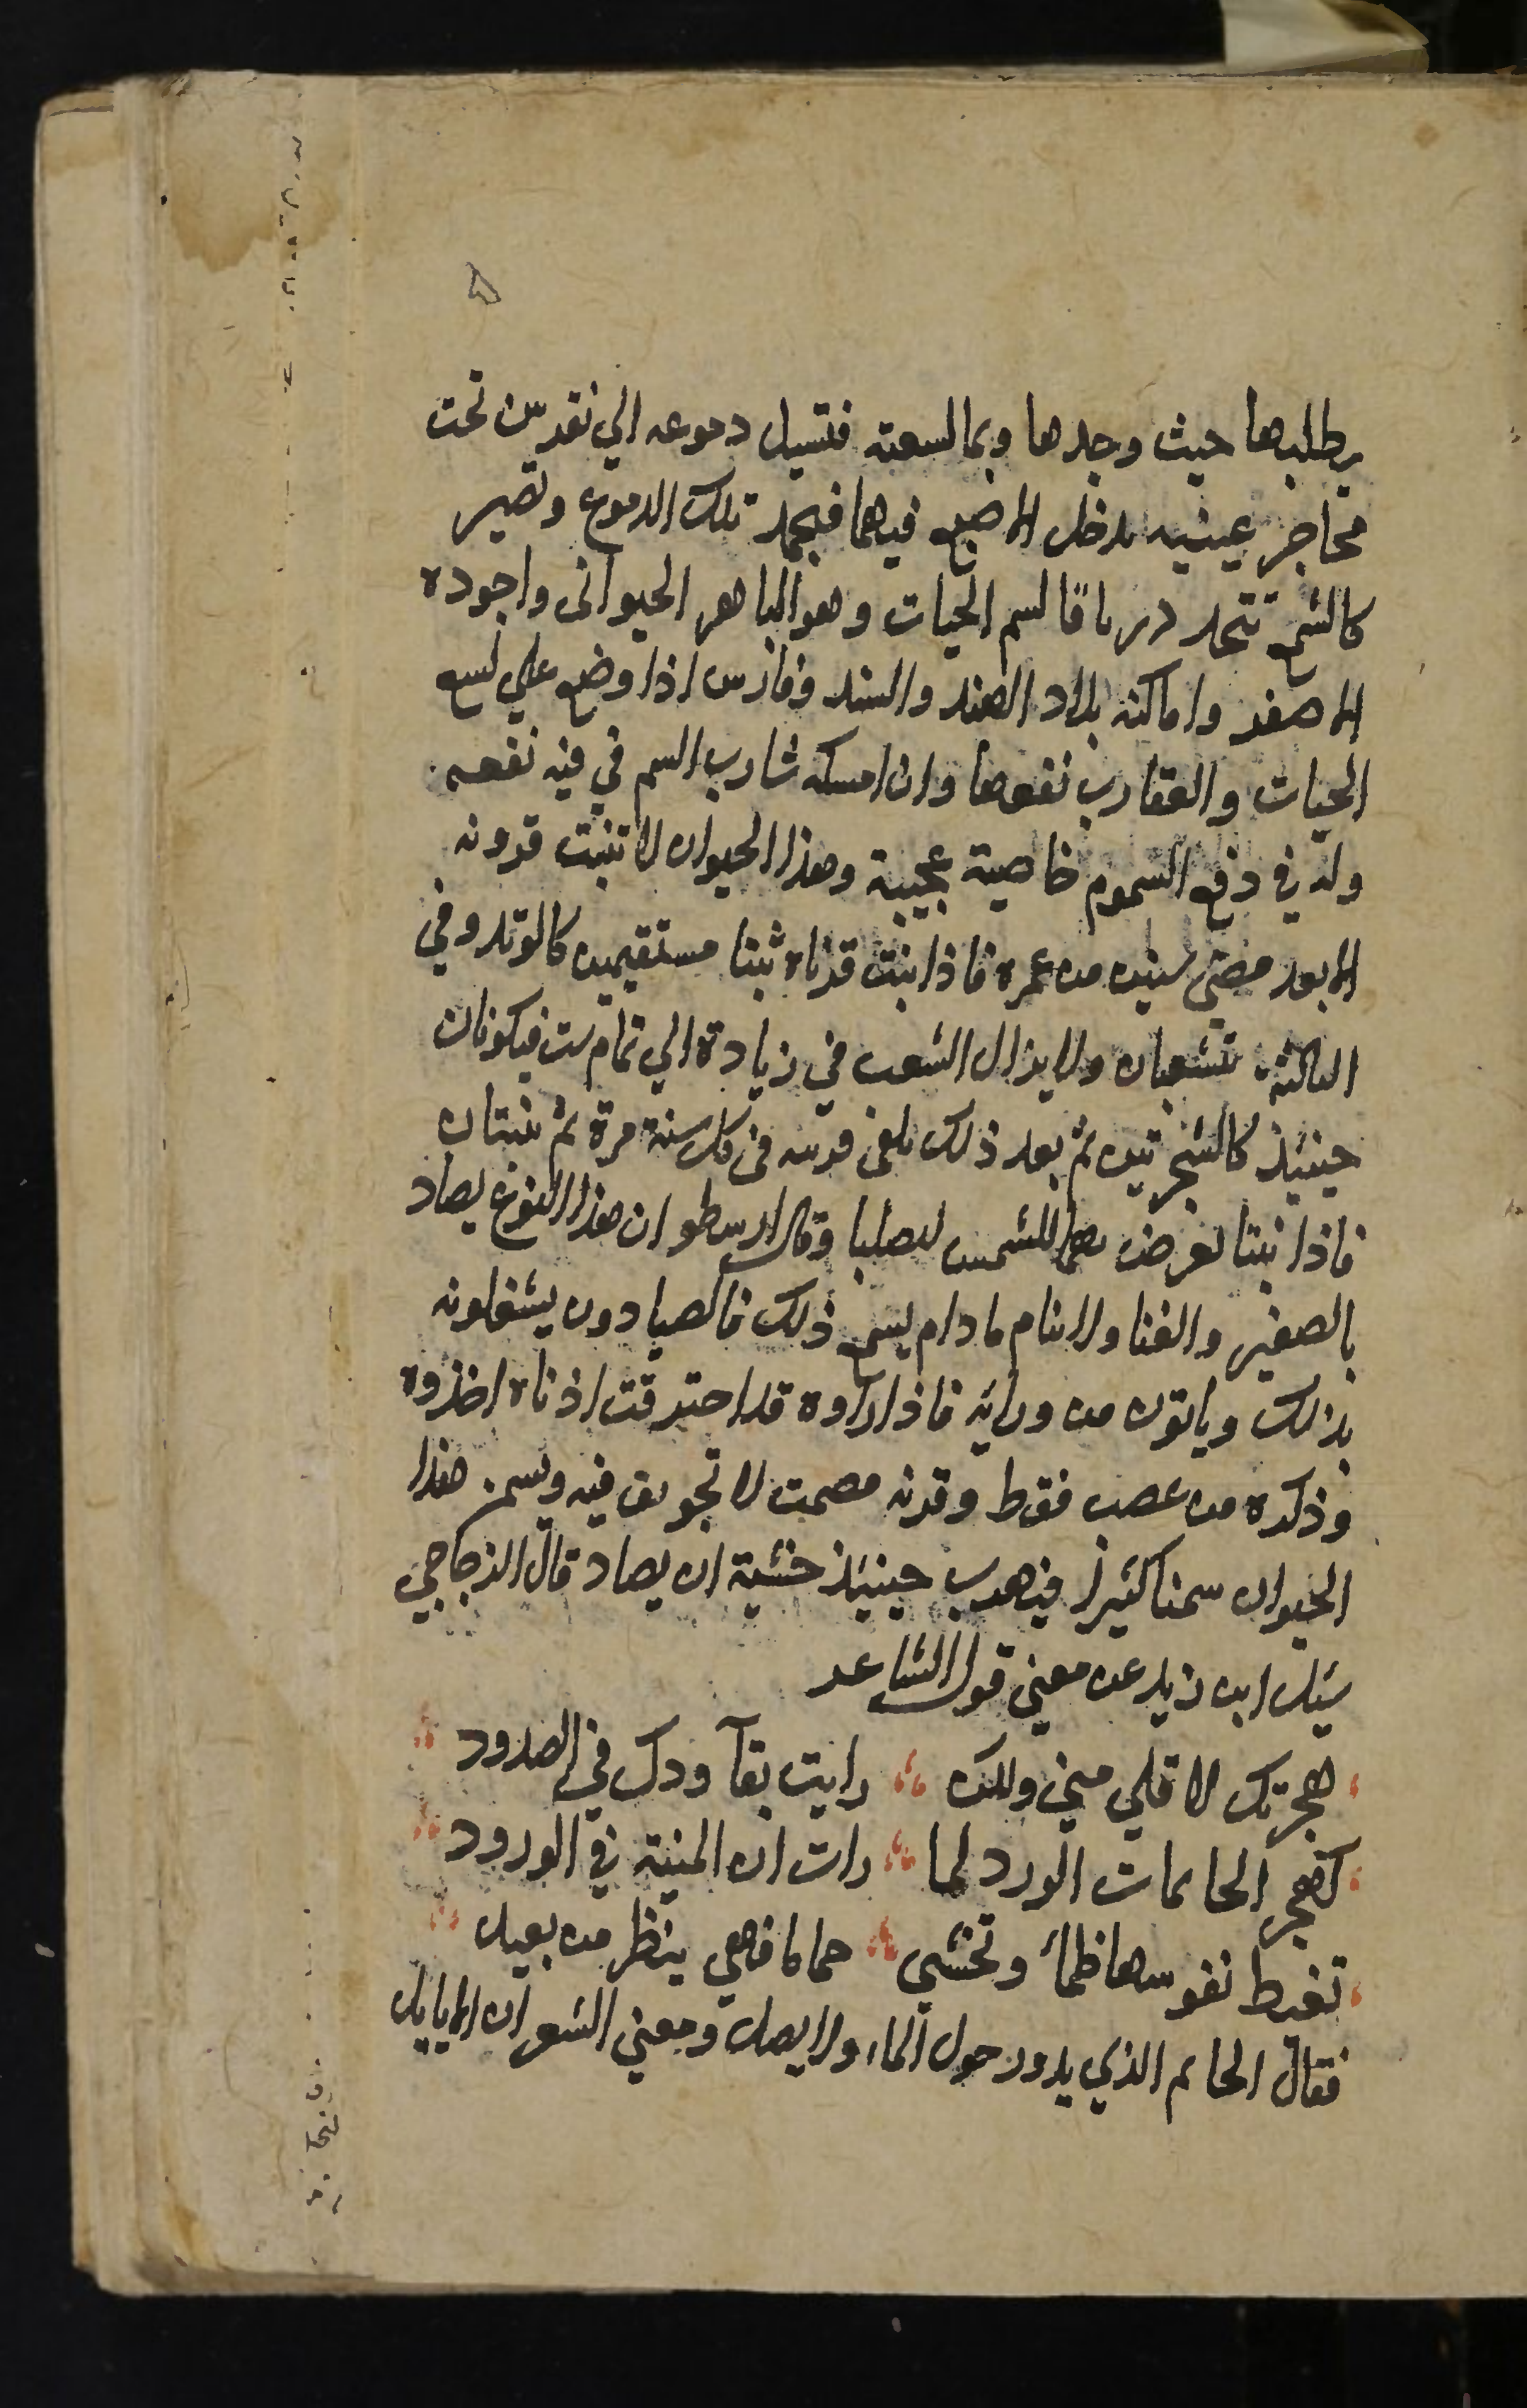 يطلبها حيث وجدها وبما لسعته فتسيل دموعه الي نقرتين تحت
محاجر عينيه يدخل الاصبع فيهما فيجمد تلك الدموع وتصير
كالشمع تتخد درياقا لسم الحيات وهو الباهر الحيواني واجوده
الاصفر واماكنه بلاد الهند والسند وفارس اذا وضع علي لسع
الحيات والعقارب نفعها وان امسكه شارب السم في فيه نفعه
وله في دفع السموم خاصية عجيبة وهذا الحيوان لا تنبت قرونه
الا بعد مضي سنين من عمره فاذا نبت قرناه نبتا مستقيمين كالوتد وفي
الثالثة تتشعبان ولا يزال الشعب في زيادة الي تمام ست فيكونان
حينيذ كالشجرتين ثم بعد ذلك يلقي قرنه في كل سنة مرة ثم ينبتان
فاذا نبتا تعرض بهما للشمس ليصلبا وقال ارسطو ان هذا النوع يصاد
بالصفير والغنا ولا ينام ما دام يسمع ذلك فالصيادون يشغلونه
بذلك وياتون من ورايه فاذا راوه قد احترقت اذناه اخذوه
وذكره من عصب فقط وقرنه مصمت لا تجويف فيه ويسمن هذا
الحيوان سمنا كثيرا فيهرب حينيذ خشية ان يصاد قال الزجاجي
سيل ابن زيد عن معني قول الشاعر
هجرتك لا قلي مني ولكن رايت بقآ ودك في الصدود
كهجر الحايمات الورد لما رات ان المنية في الورود
تغيط نفوسها ظمأ وتخشي حماما فهي ينظر من بعيد
فقال الحايم الذي يدور حول الماء ولا يصل ومعني الشعر ان الايايل